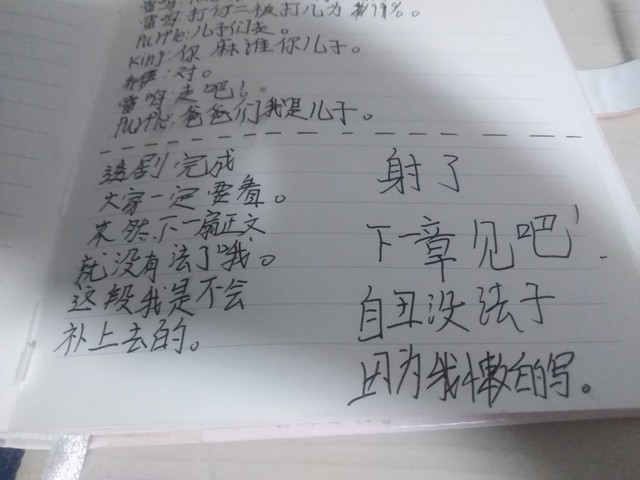 雷鸣:打何二被打儿为 19%。
PU坪化:儿子们走。
King:你 麻谁你儿子。
:对。
雷鸣:走吧!
:爸爸们我是儿子。
完成
大家一定要看。
不然下一扁正文
就没有法了哦。
这段我是不会
补上去的。
射了
下章见吧!
自丑没法于
因为我懒的写。